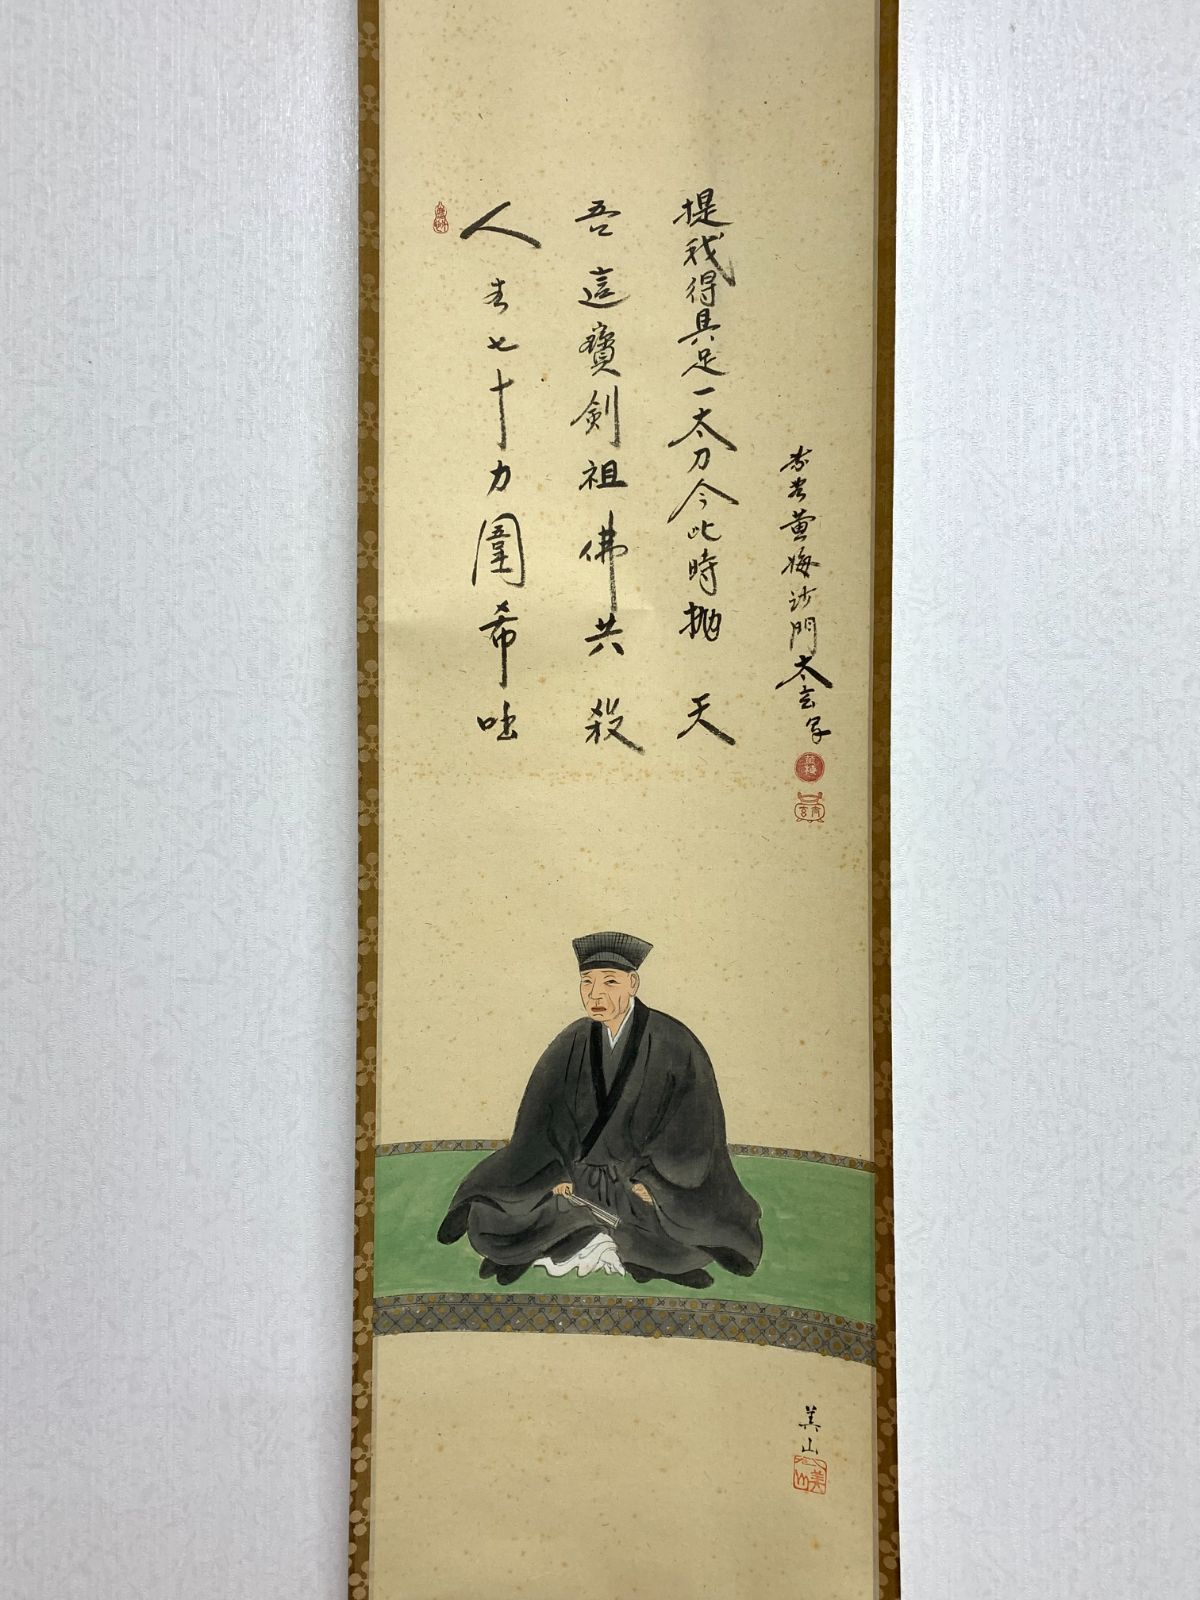 人生七十力圍希咄
吾這寶剣祖佛共殺
提我得具足一太刀今此時抛天
黄梅沙門太玄
黄梅
美山
美山